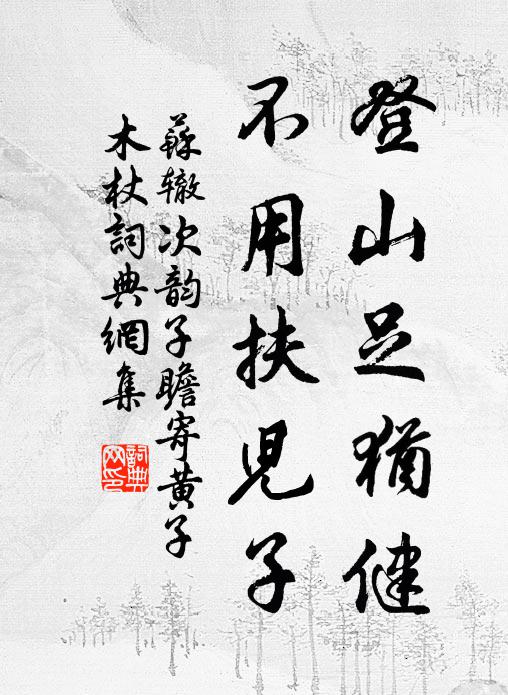 登山足猶健
不用扶兒子
蘇轍次韵子瞻寄黃子
木杖詞典網集
詞典
网印